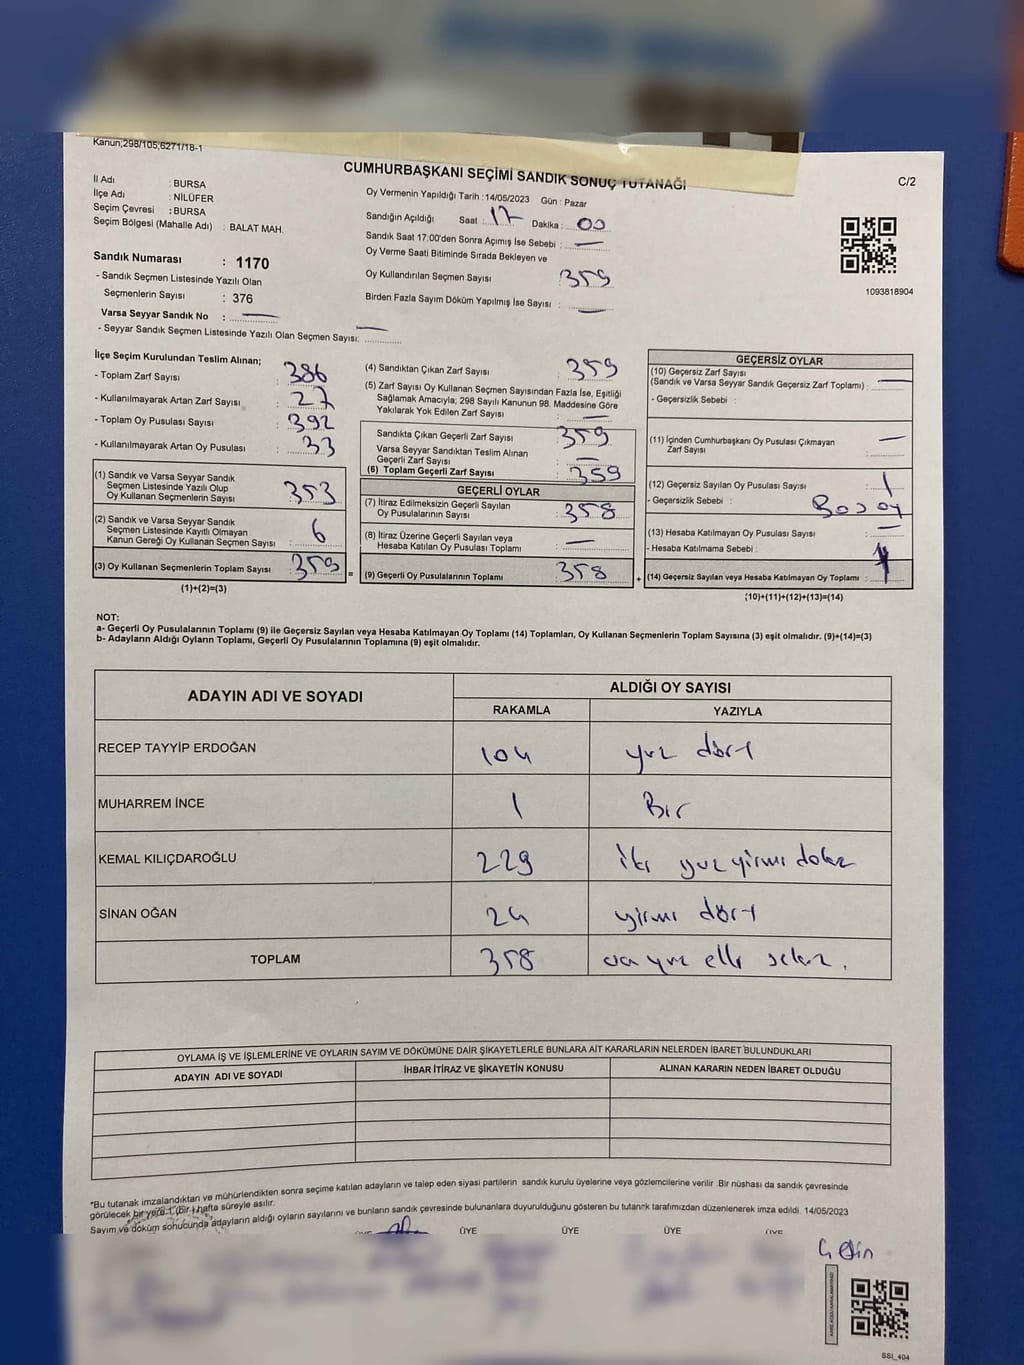 Kanun;298/105,6271/18-1
CUMHURBAŞKANI SEÇİMİ SANDIK SONUÇ TUTANAĞI
C/2
İl Adı : BURSA
İlçe Adı : NİLÜFER
Seçim Çevresi : BURSA
Seçim Bölgesi (Mahalle Adı) : BALAT MAH.
Sandık Numarası : 1170
- Sandık Seçmen Listesinde Yazılı Olan
Seçmenlerin Sayısı : 376
Varsa Seyyar Sandık No : —
- Seyyar Sandık Seçmen Listesinde Yazılı Olan Seçmen Sayısı: —
Oy Vermenin Yapıldığı Tarih :14/05/2023 Gün : Pazar
Sandığın Açıldığı Saat : 17 Dakika : 00
Sandık Saat 17:00'den Sonra Açımış İse Sebebi : —
Oy Verme Saati Bitiminde Sırada Bekleyen ve
Oy Kullandırılan Seçmen Sayısı 359
Birden Fazla Sayım Döküm Yapılmış İse Sayısı : —
1093818904
İlçe Seçim Kurulundan Teslim Alınan;
- Toplam Zarf Sayısı : 386
- Kullanılmayarak Artan Zarf Sayısı : 27
- Toplam Oy Pusulası Sayısı : 392
- Kullanılmayarak Artan Oy Pusulası : 33
(1) Sandık ve Varsa Seyyar Sandık
Seçmen Listesinde Yazılı Olup
Oy Kullanan Seçmenlerin Sayısı : 353
(2) Sandık ve Varsa Seyyar Sandık
Seçmen Listesinde Kayıtlı Olmayan
Kanun Gereği Oy Kullanan Seçmen Sayısı : 6
(3) Oy Kullanan Seçmenlerin Toplam Sayısı : 359 =
(1)+(2)=(3)
(4) Sandıktan Çıkan Zarf Sayısı : 359
(5) Zarf Sayısı Oy Kullanan Seçmen Sayısından Fazla İse, Eşitliği
Sağlamak Amacıyla; 298 Sayılı Kanunun 98. Maddesine Göre
Yakılarak Yok Edilen Zarf Sayısı : —
Sandıkta Çıkan Geçerli Zarf Sayısı : 359
Varsa Seyyar Sandıktan Teslim Alınan
Geçerli Zarf Sayısı : —
(6) Toplam Geçerli Zarf Sayısı : 359
GEÇERLİ OYLAR
(7) İtiraz Edilmeksizin Geçerli Sayılan
Oy Pusulalarının Sayısı : 358
(8) İtiraz Üzerine Geçerli Sayılan veya
Hesaba Katılan Oy Pusulası Toplamı : —
(9) Geçerli Oy Pusulalarının Toplamı : 358 +
GEÇERSİZ OYLAR
(10) Geçersiz Zarf Sayısı
(Sandık ve Varsa Seyyar Sandık Geçersiz Zarf Toplamı) : —
- Geçersizlik Sebebi :
(11) İçinden Cumhurbaşkanı Oy Pusulası Çıkmayan
Zarf Sayısı : —
(12) Geçersiz Sayılan Oy Pusulası Sayısı : 1
- Geçersizlik Sebebi : Boş oy
(13) Hesaba Katılmayan Oy Pusulası Sayısı : —
- Hesaba Katılmama Sebebi :
(14) Geçersiz Sayılan veya Hesaba Katılmayan Oy Toplamı : 1
(10)+(11)+(12)+(13)=(14)
NOT:
a- Geçerli Oy Pusulalarının Toplamı (9) ile Geçersiz Sayılan veya Hesaba Katılmayan Oy Toplamı (14) Toplamları, Oy Kullanan Seçmenlerin Toplam Sayısına (3) eşit olmalıdır. (9)+(14)=(3)
b- Adayların Aldığı Oyların Toplamı, Geçerli Oy Pusulalarının Toplamına (9) eşit olmalıdır.
ADAYIN ADI VE SOYADI ALDIĞI OY SAYISI
RAKAMLA YAZIYLA
RECEP TAYYİP ERDOĞAN 104 yüz dört
MUHARREM İNCE 1 Bir
KEMAL KILIÇDAROĞLU 229 iki yüz yirmi dokuz
SİNAN OĞAN 24 yirmi dört
TOPLAM 358 üç yüz elli sekiz.
OYLAMA İŞ VE İŞLEMLERİNE VE OYLARIN SAYIM VE DÖKÜMÜNE DAİR ŞİKAYETLERLE BUNLARA AİT KARARLARIN NELERDEN İBARET BULUNDUKLARI
ADAYIN ADI VE SOYADI İHBAR İTİRAZ VE ŞİKAYETİN KONUSU ALINAN KARARIN NEDEN İBARET OLDUĞU
*Bu tutanak imzalandıktan ve mühürlendikten sonra seçime katılan adayların ve talep eden siyasi partilerin sandık kurulu üyelerine veya gözlemcilerine verilir .Bir nüshası da sandık çevresinde
görülecek bir yere 1 (bir ) hafta süreyle asılır.
Sayım ve döküm sonucunda adayların aldığı oyların sayılarını ve bunların sandık çevresinde bulunanlara duyurulduğunu gösteren bu tutanak tarafımızdan düzenlenerek imza edildi. 14/05/2023
ÜYE ÜYE ÜYE ÜYE ÜYE
SSI_404